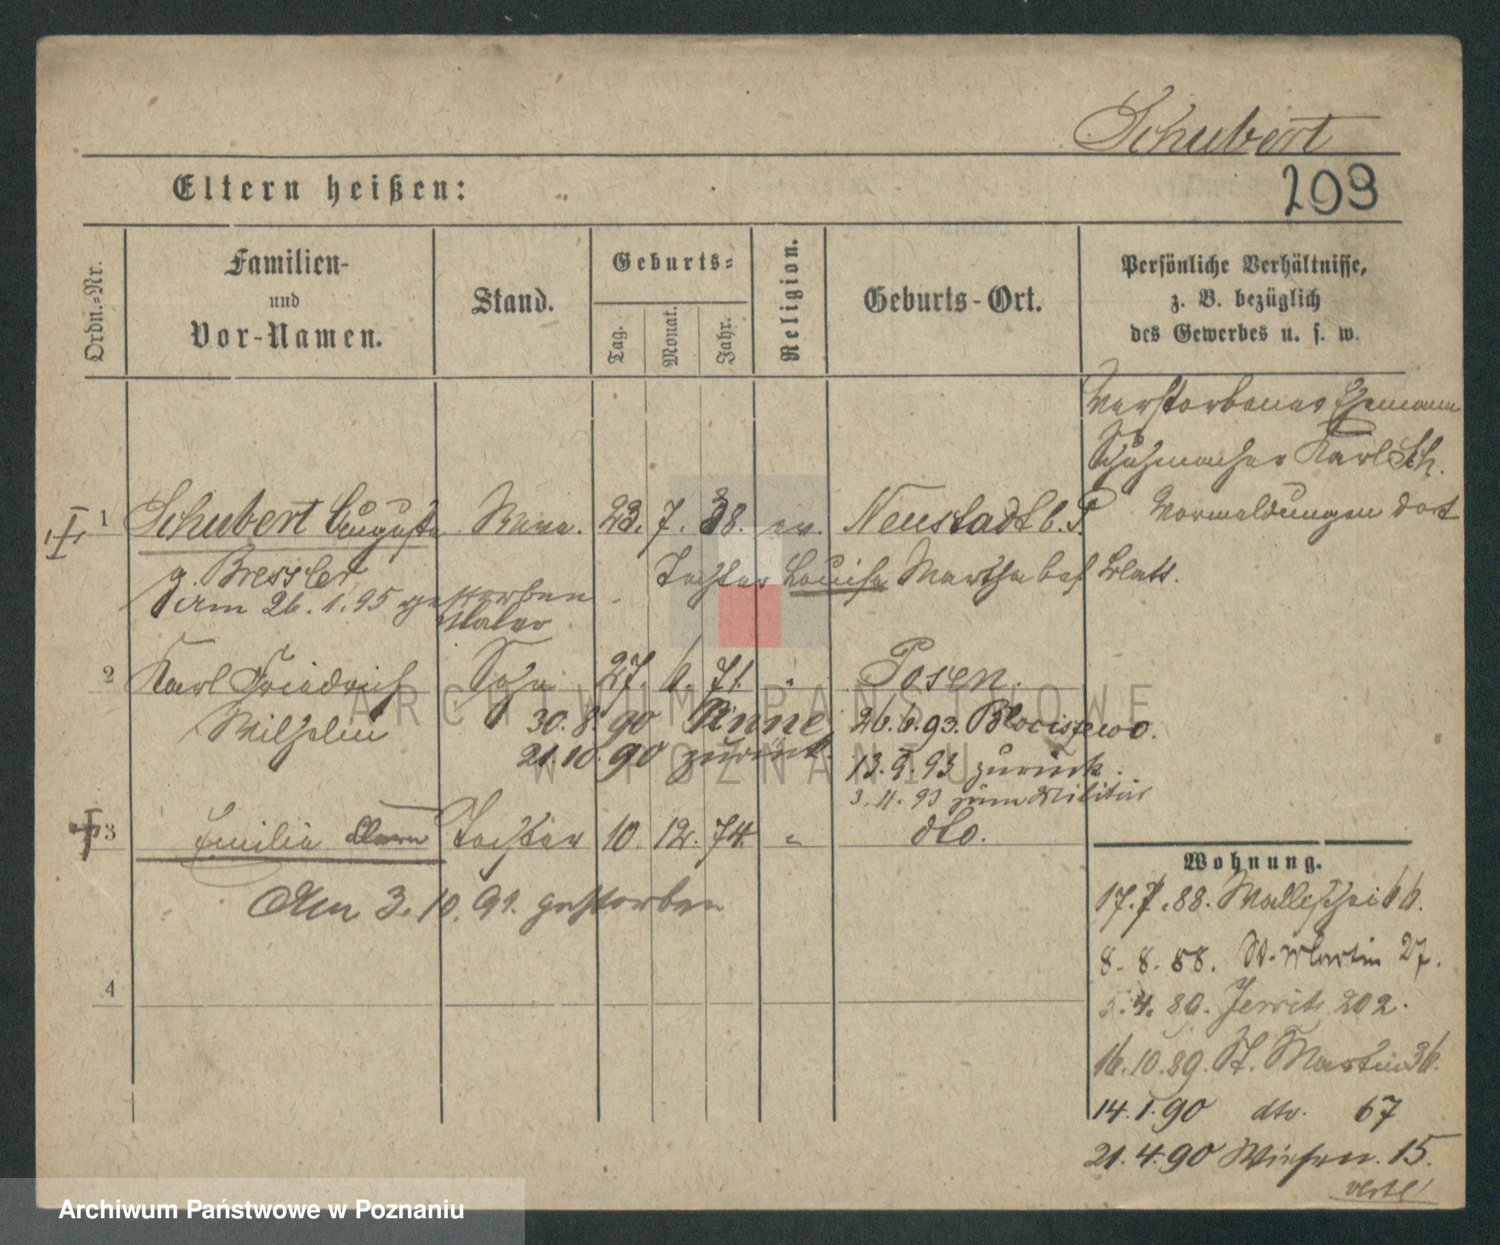 Schubert
209
Eltern heißen:
Ordn.-Nr.
Familien-
und
Vor-Namen.
Stand.
Geburts-
Tag.
Monat.
Jahr.
Religion.
Geburts-Ort.
Persönliche Verhältnisse,
z. B. bezüglich
des Gewerbes u. s. w.
Verstorbener Ehemann
Schuhmacher Karl Sch.
Vormeldungen dort
1 Schubert Auguste Wwe. 23. 7. 38. ev. Neustadt b. P.
g. Bressler
Tochter Louise Martha bes. Blatt.
Am 26. 1. 95 gestorben
Maler
2 Karl Friedrich Sohn 27. 6. 71. " Posen.
Wilhelm
30. 8. 90 Pinne
26. 6. 93. Blociszewo.
21. 10. 90 zurück.
13. 9. 93 zurück.
3. 11. 93 zum Militär
3 Emilie Tochter 10. 12. 74. " dto.
Am 3. 10. 91. gestorben
4
Wohnung.
17. 7. 88. Wallischei 66.
8. 8. 88. St. Martin 27.
5. 4. 89. Jersitz 202.
16. 10. 89. St. Martin 36.
14. 1. 90 dto. 67
21. 4. 90 Wiesen. 15.
ARCHIWUM PAŃSTWOWE
W POZNANIU
Archiwum Państwowe w Poznaniu